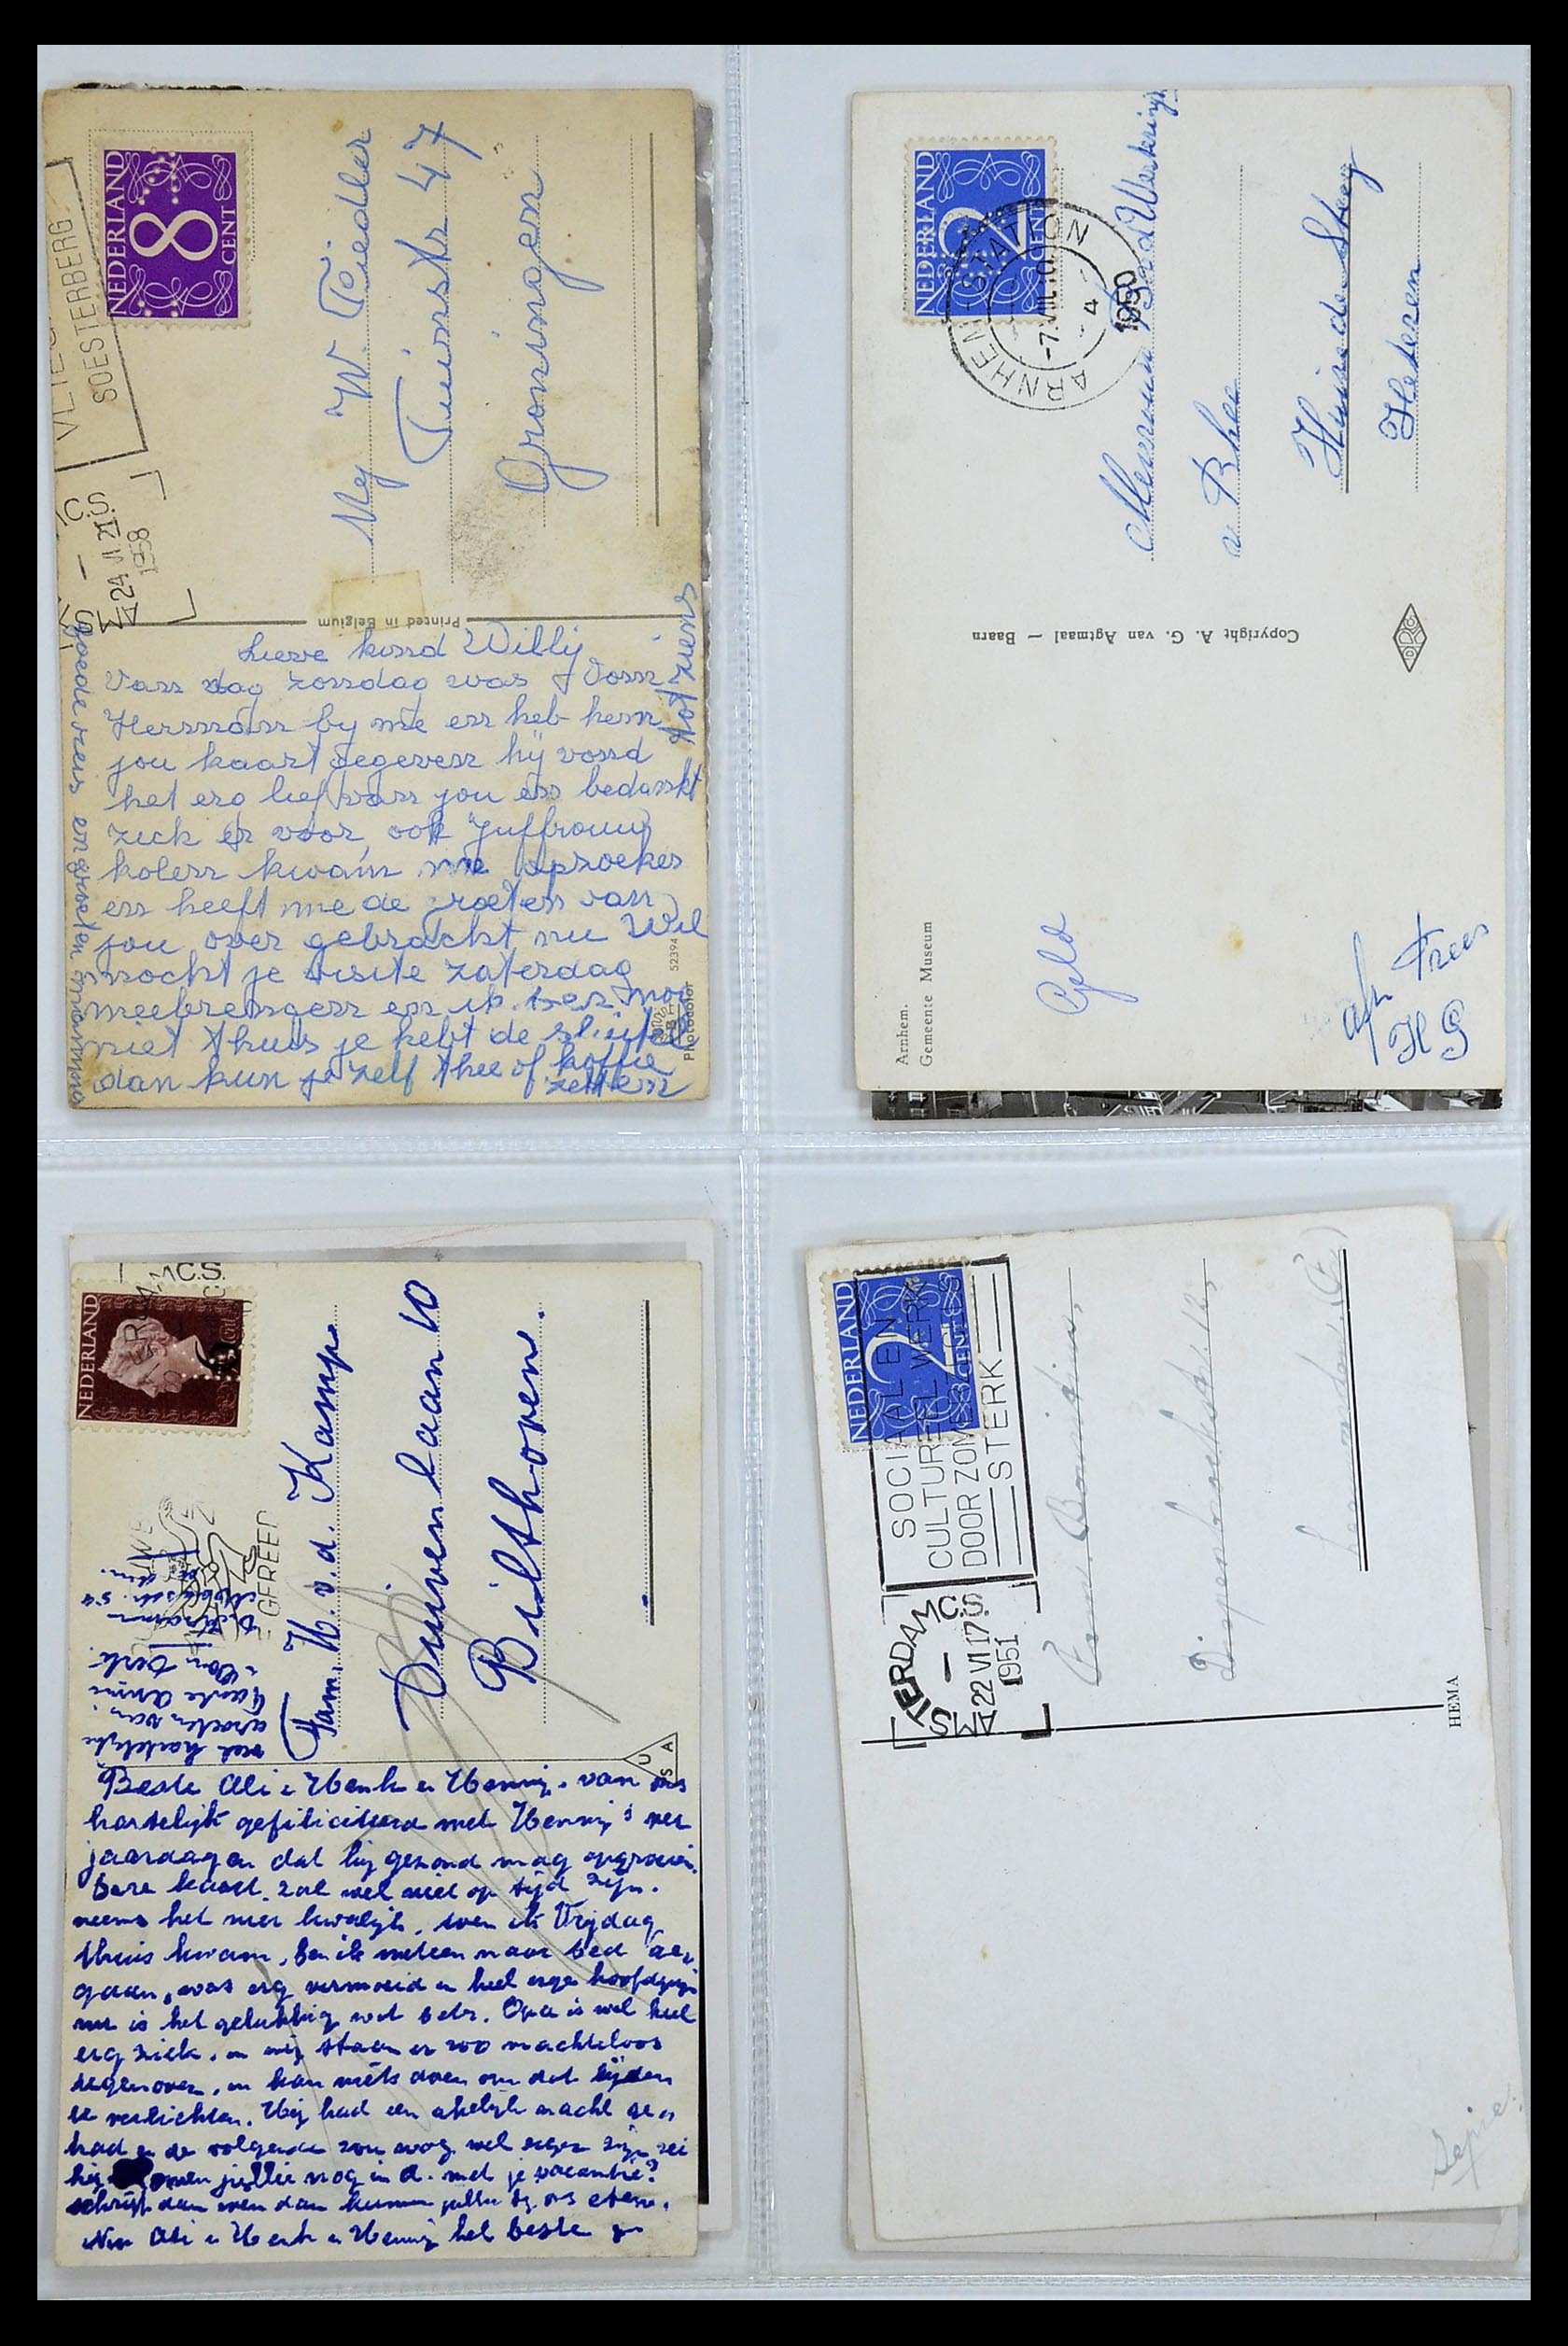 NEDERLAND
8
CENT
SOESTERBERG
24 VI 21.S
1958
Mej W. Tiedler
Tuinstr 47
Groningen
Printed in Belgium
Lieve kind Willy
Van dag zondag was Oom
Herman by me en heb hem
jou kaart gegeven hij vond
het erg lief van jou en bedankt
zick er voor, ook Juffrouw
kolen kwam me opzoeken
en heeft me de groeten van
jou over gebracht nu Wil
mocht je visite zaterdag
meebrengen en ik ben nog
niet thuis je hebt de sleutel
dan kun je zelf thee of koffie
zetten
tot ziens
goede reis en groeten mamma
52394
Photocolor
NEDERLAND
2
CENT
ARNHEM-STATION
-7.VIII.
4
1950
Mevrouw
v Rhee
Huis de Steeg
Heteren
Copyright A. G. van Agtmaal — Baarn
Arnhem.
Gemeente Museum
Geld
afz Frees
H G
NEDERLAND
6
MC.S.
Fam. H. v. d. Kamp
Duivenlaan 10
Bilthoven.
met hartelijke
groeten van
Tante Annie
Oom
USA
Beste Ali en Henk en Henny, van ons
hartelijk gefeliciteerd met Henny's ver
jaardag en dat hij gezond mag opgroeien.
Deze kaart zal wel niet op tijd zijn.
neems het niet kwalijk, toen ik Vrijdag
thuis kwam, ben ik meteen naar bed ge
gaan, was erg vermoeid en heel erge hoofdpijn
nu is het gelukkig wat beter. Opa is wel heel
erg ziek, en wij staan er zoo machteloos
tegenover, en kan niets doen om dat lijden
te verlichten. Hij had een akelijk nacht ge
had en de volgende zou nog wel erger zijn zei
hij jullie nog in A. met je vacantie?
schrijf dan even dan kunnen jullie bij ons eten.
Nu Ali en Henk en Henny het beste
NEDERLAND
2
CENT
SOCIAAL EN
CULTUREEL WERK
DOOR ZOMERZEGELS
STERK
AMSTERDAM C.S.
22 VI 17
1951
Fam.
12,
HEMA